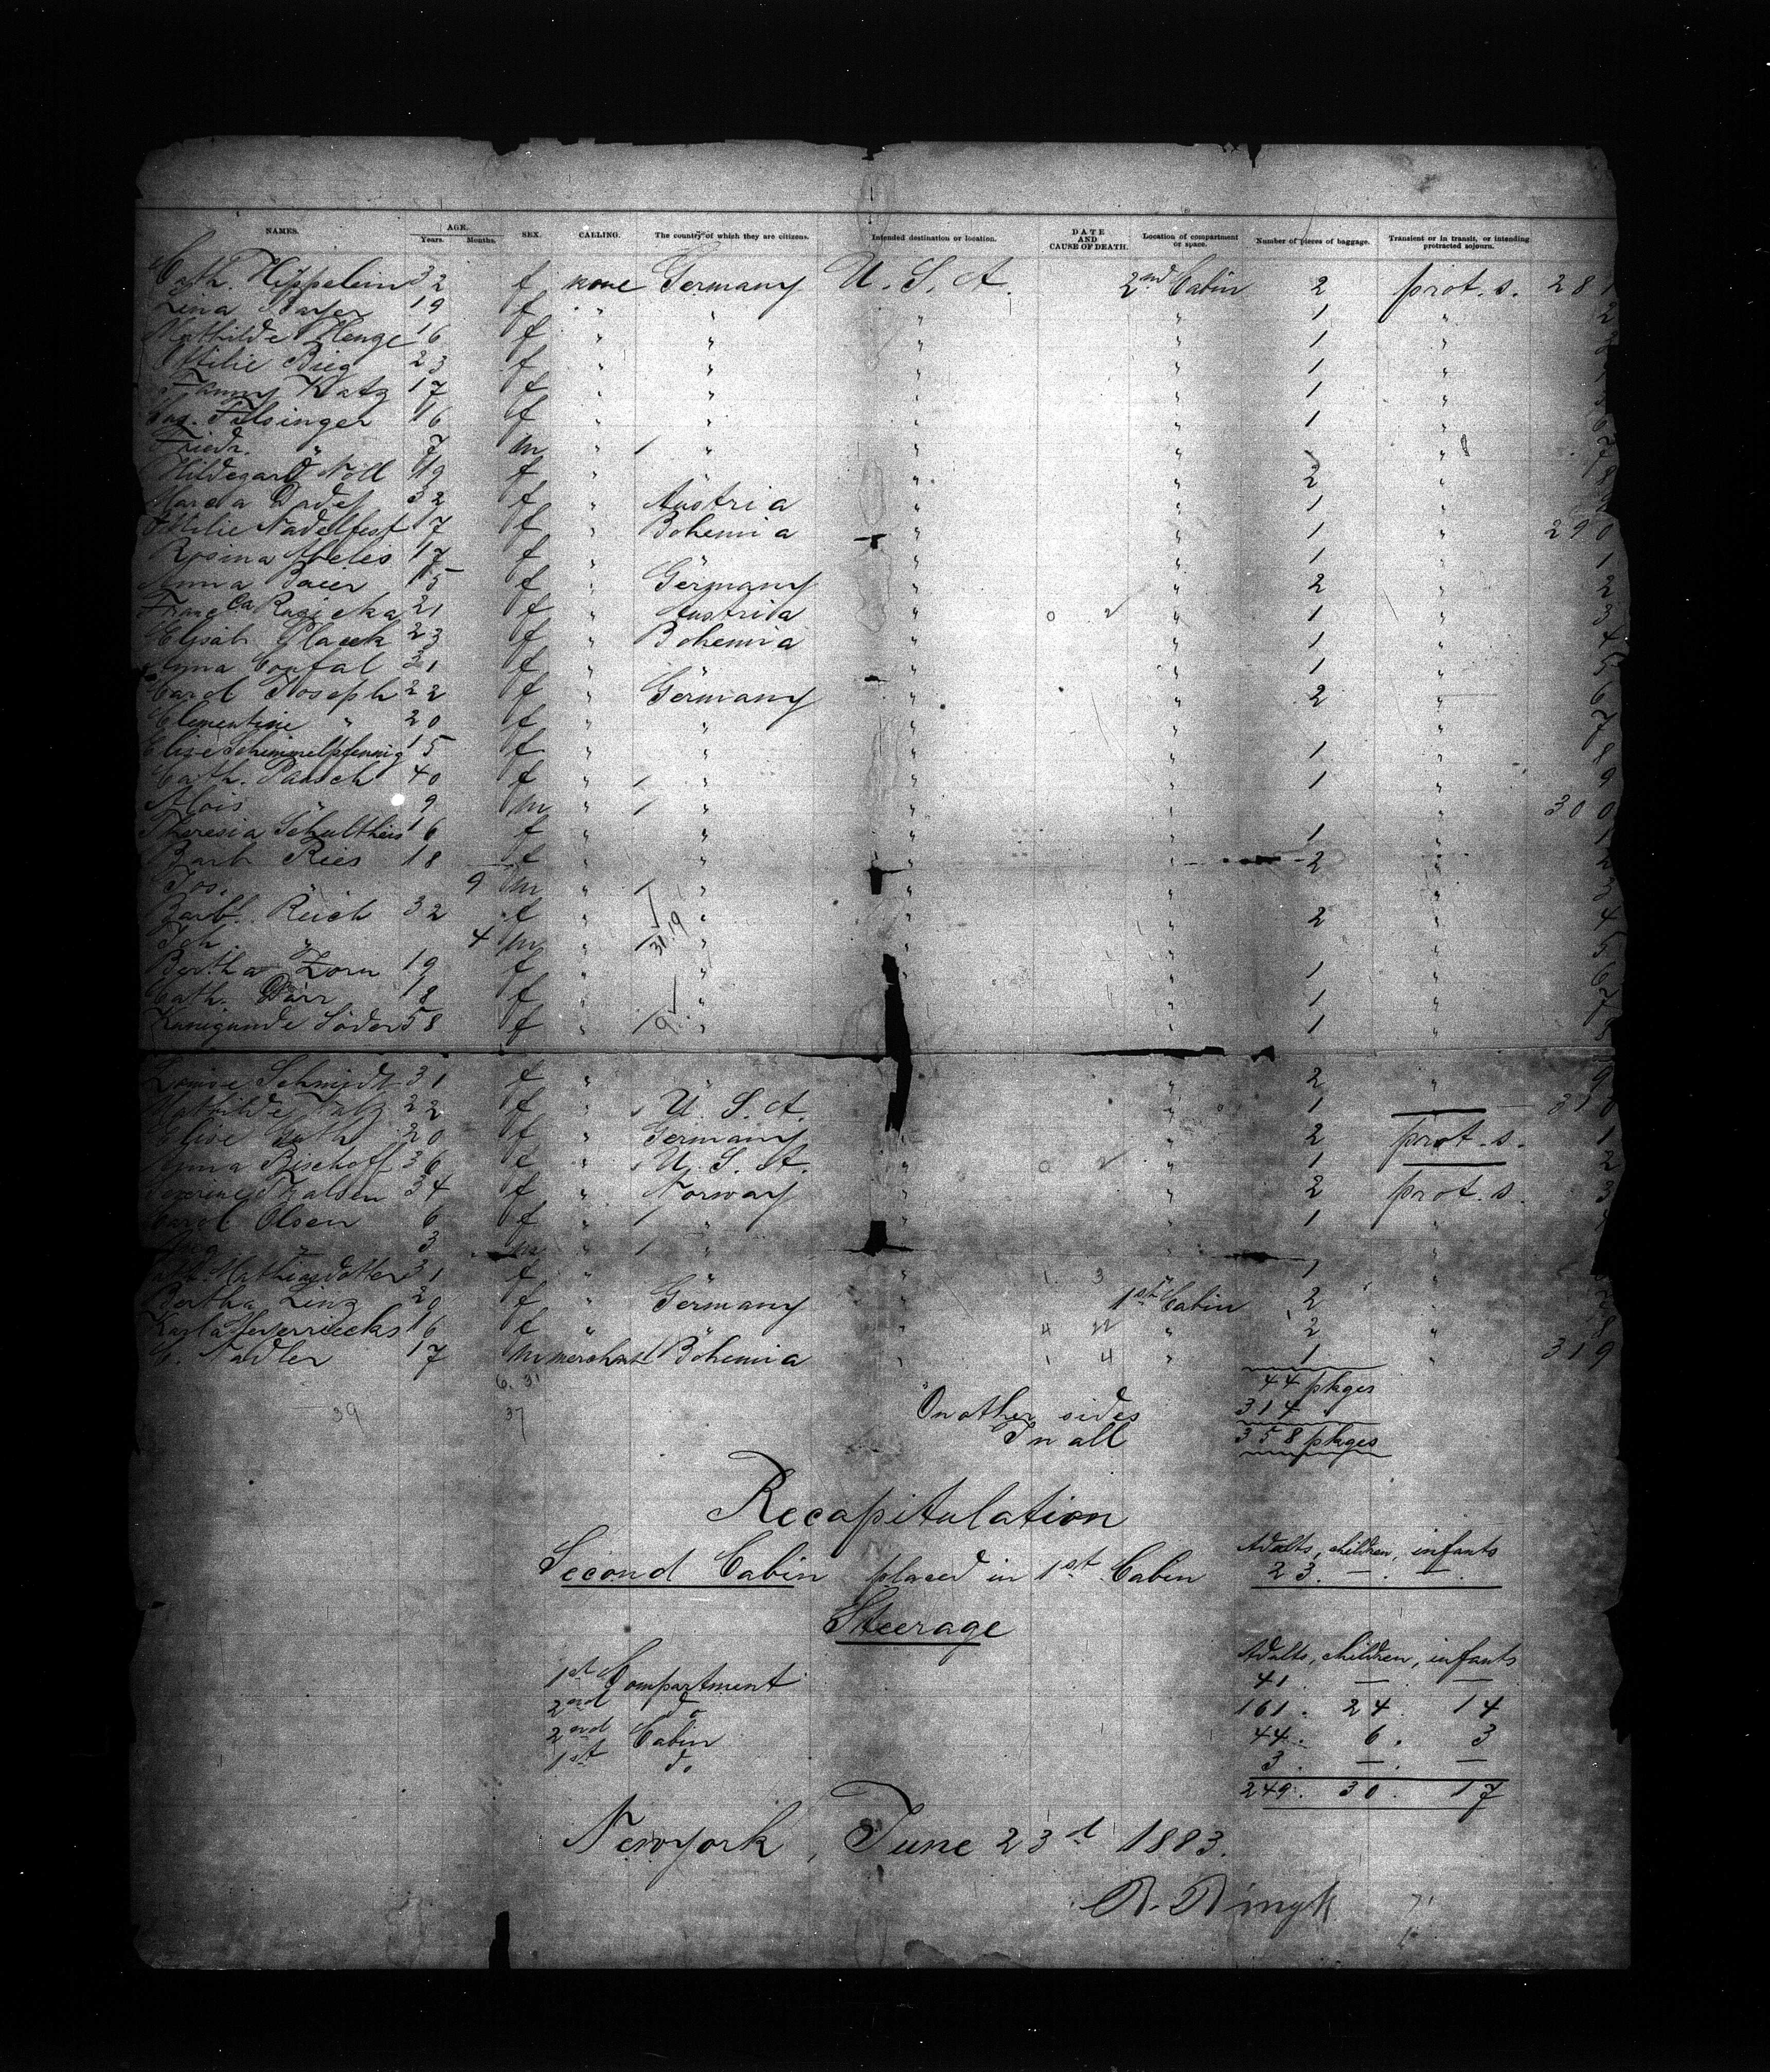 NAMES. AGE. Years. Months. SEX. CALLING. The country of which they are citizens. Intended destination or location. DATE AND CAUSE OF DEATH. Location of compartment or space. Number of pieces of baggage. Transient or in transit, or intending protracted sojourn.
Cath. Hippelein 32 f none Germany U. S. A. 2nd Cabin 2 prot. s. 281
Lina 19 f " " " " 1 "
Mathilde Menge 16 f " " " " 1 "
Ottilie Bieg 23 f " " " " 1 "
Fanny Katz 17 f " " " " 1 "
Felsinger 16 f " " " " 1 "
Friedr. " 7 m " " " " "
Hildegard Noll 19 f " " " " 2 "
32 f " Austria " " 1 "
Nadelfest 17 f " Bohemia " " 1 " 290
Rosina 17 f " " " " 1 " 1
Anna Baier 15 f " Germany " " 2 " 2
Franc.ca Ruzicka 21 f " Austria " " 1 " 3
Elisab. 23 f " Bohemia " " 1 " 4
Anna 21 f " " " " 1 " 5
Carol Joseph 22 f " Germany " " 2 " 6
Clementine " 20 f " " " " " 7
Elise Schimmelpfennig 15 f " " " " 1 " 8
Cath. Paasch 40 f " " " " 1 " 9
Alois " 9 m " " " " " 300
Theresia Schultheis 16 f " " " " 1 " 1
Barb. Ries 18 f " " " " 2 "
Jos. " 9 m " " " " "
Barb. Reich 32 f " " " " 2 " 4
Joh. " 4 m " " " " " 5
Bertha Zorn 19 f " " " " 1 " 6
Cath. Dürr 18 f " " " " 1 " 7
Kunigunde Söder 58 f " " " " 1 "
Louise Schmidt 31 f " " " 2 " 9
Mathilde 22 f " U. S. A. " 1 — 310
Elise Guth 20 f " Germany " " 2 prot. s. 1
Anna Bischoff 36 f " U. S. A. " " 1 — 2
34 f " Norway " " 2 prot. s. 3
Carol Olsen 6 f " " " " 1 "
" 3 m " " " " "
Mathiasdotter 31 f " " " 1 "
Bertha Linz 20 f " Germany " 1st Cabin 2 "
Karla 16 f " " " " 2 "
Nadler 17 m merchant Bohemia " " 1 " 319
44 pkges
On other sides 314 "
In all 358 pkges
Recapitulation
Adults, children, infants
Second Cabin placed in 1st Cabin 23. —. —.
Steerage
Adults, children, infants
1st Compartment 41. — —
2nd do 161. 24. 14
2nd Cabin 44. 6. 3
1st do. 3. —. —
249. 30. 17
Newyork, June 23d 1883.